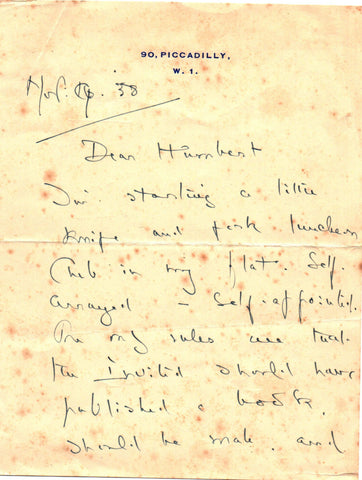 90, PICCADILLY,
W. 1.
Nov. '38
Dear Humbert
I'm starting a little
knife and fork luncheon
Club in my flat. Self.
arranged – self-appointed.
The only rules are that
the Invited should have
published a book,
should be male, and